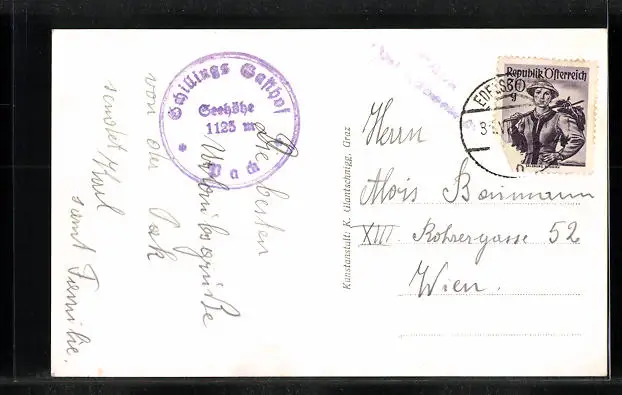 Schillings Gasthof
Seehöhe
1123 m
* Pack *
Die besten
Urlaubsgrüße
von der Pak
sendet Karl
samt Familie.
Kunstanstalt: K. Glantschnigg, Graz
EDELS
Republik Österreich
60
g
Herrn
Alois Baumann
XIII. Rohrergasse 52
Wien.